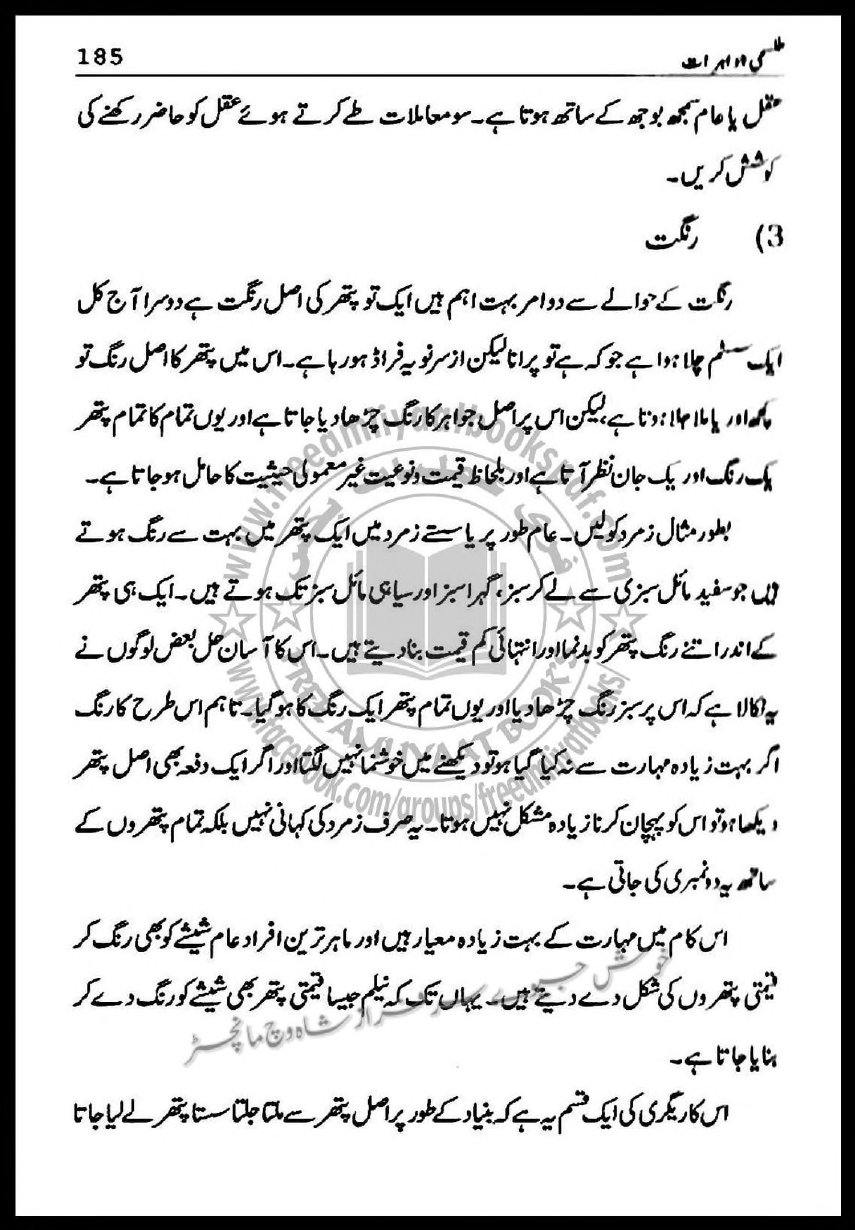 طلسمی جواہرات 185
عقل یا عام سمجھ بوجھ کے ساتھ ہوتا ہے۔ سو معاملات طے کرتے ہوئے عقل کو حاضر رکھنے کی
کوشش کریں۔
3) رنگت
رنگت کے حوالے سے دو امر بہت اہم ہیں ایک تو پتھر کی اصل رنگت ہے دوسرا آج کل
ایک سسٹم چلا ہوا ہے جو کہ ہے تو پرانا لیکن از سرنو یہ فراڈ ہو رہا ہے۔ اس میں پتھر کا اصل رنگ تو
کچھ اور یا ملا جلا ہوتا ہے، لیکن اس پر اصل جواہر کا رنگ چڑھا دیا جاتا ہے اور یوں تمام کا تمام پتھر
یک رنگ اور یک جان نظر آتا ہے اور بلحاظ قیمت و نوعیت غیر معمولی حیثیت کا حامل ہو جاتا ہے۔
بطور مثال زمرد کو لیں۔ عام طور پر یا سستے زمرد میں ایک پتھر میں بہت سے رنگ ہوتے
ہیں جو سفید مائل سبزی سے لے کر سبز، گہرا سبز اور سیاہی مائل سبز تک ہوتے ہیں۔ ایک ہی پتھر
کے اندر اتنے رنگ پتھر کو بدنما اور انتہائی کم قیمت بنا دیتے ہیں۔ اس کا آسان حل بعض لوگوں نے
یہ نکالا ہے کہ اس پر سبز رنگ چڑھا دیا اور یوں تمام پتھر ایک رنگ کا ہو گیا۔ تاہم اس طرح کا رنگ
اگر بہت زیادہ مہارت سے نہ کیا گیا ہو تو دیکھنے میں خوشنما نہیں لگتا اور اگر ایک دفعہ بھی اصل پتھر
دیکھا ہو تو اس کو پہچان کرنا زیادہ مشکل نہیں ہوتا۔ یہ صرف زمرد کی کہانی نہیں بلکہ تمام پتھروں کے
ساتھ یہ دو نمبری کی جاتی ہے۔
اس کام میں مہارت کے بہت زیادہ معیار ہیں اور ماہر ترین افراد عام شیشے کو بھی رنگ کر
قیمتی پتھروں کی شکل دے دیتے ہیں۔ یہاں تک کہ نیلم جیسا قیمتی پتھر بھی شیشے کو رنگ دے کر
بنایا جاتا ہے۔
اس کاریگری کی ایک قسم یہ ہے کہ بنیاد کے طور پر اصل پتھر سے ملتا جلتا سستا پتھر لے لیا جاتا
www.freeamliyaatbookspdf.com
FREE AMLIYAAT BOOKS
www.facebook.com/groups/freeamliyatbooks/